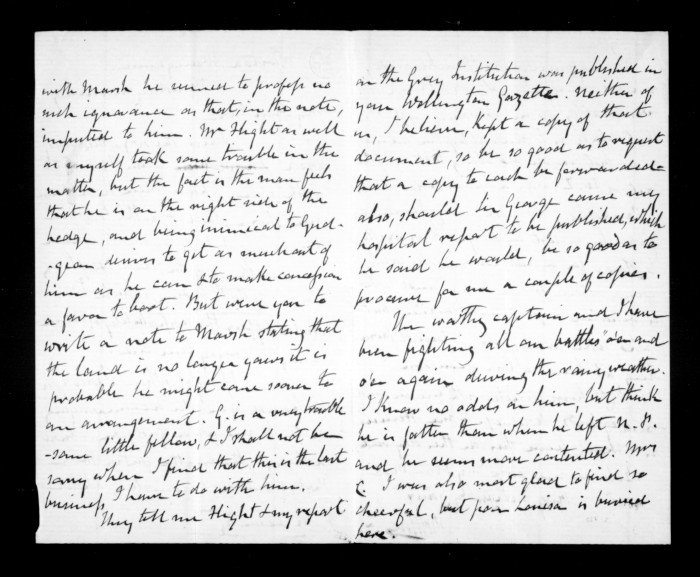 with Marsh he seemed to profess no
such ignorance as that, in the note,
imputed to him. Mr Hight as well
as myself took some trouble in the
matter, but the fact is the man feels
that he is on the right side of the
hedge, and being inimical to Gud-
-geon desires to get as much out of
him as he can & to make concession
a favor to boot. But were you to
write a note to Marsh stating that
the land is no longer yours it is
probable he might come sooner to
an arrangement. G. is a very trouble
-some little fellow, & I shall not be
sorry when I find that this is the last
business I have to do with him.
They tell me Hight & my report
on the Grey Institution was published in
your Wellington Gazette. Neither of
us, I believe, kept a copy of that
document, so be so good as to request
that a copy to each be forwarded-
also, should Sir George cause my
hospital report to be published, which
he said he would, be so good as to
procure for me a couple of copies.
The worthy captain and I have
been fighting all our battles o'er and
o'er again during the rainy weather.
I know no odds on him, but think
he is fatter than when he left N. P.
and he seems more contented. Mrs
C. I was also most glad to find so
cheerful, but poor Louisa is buried
here.